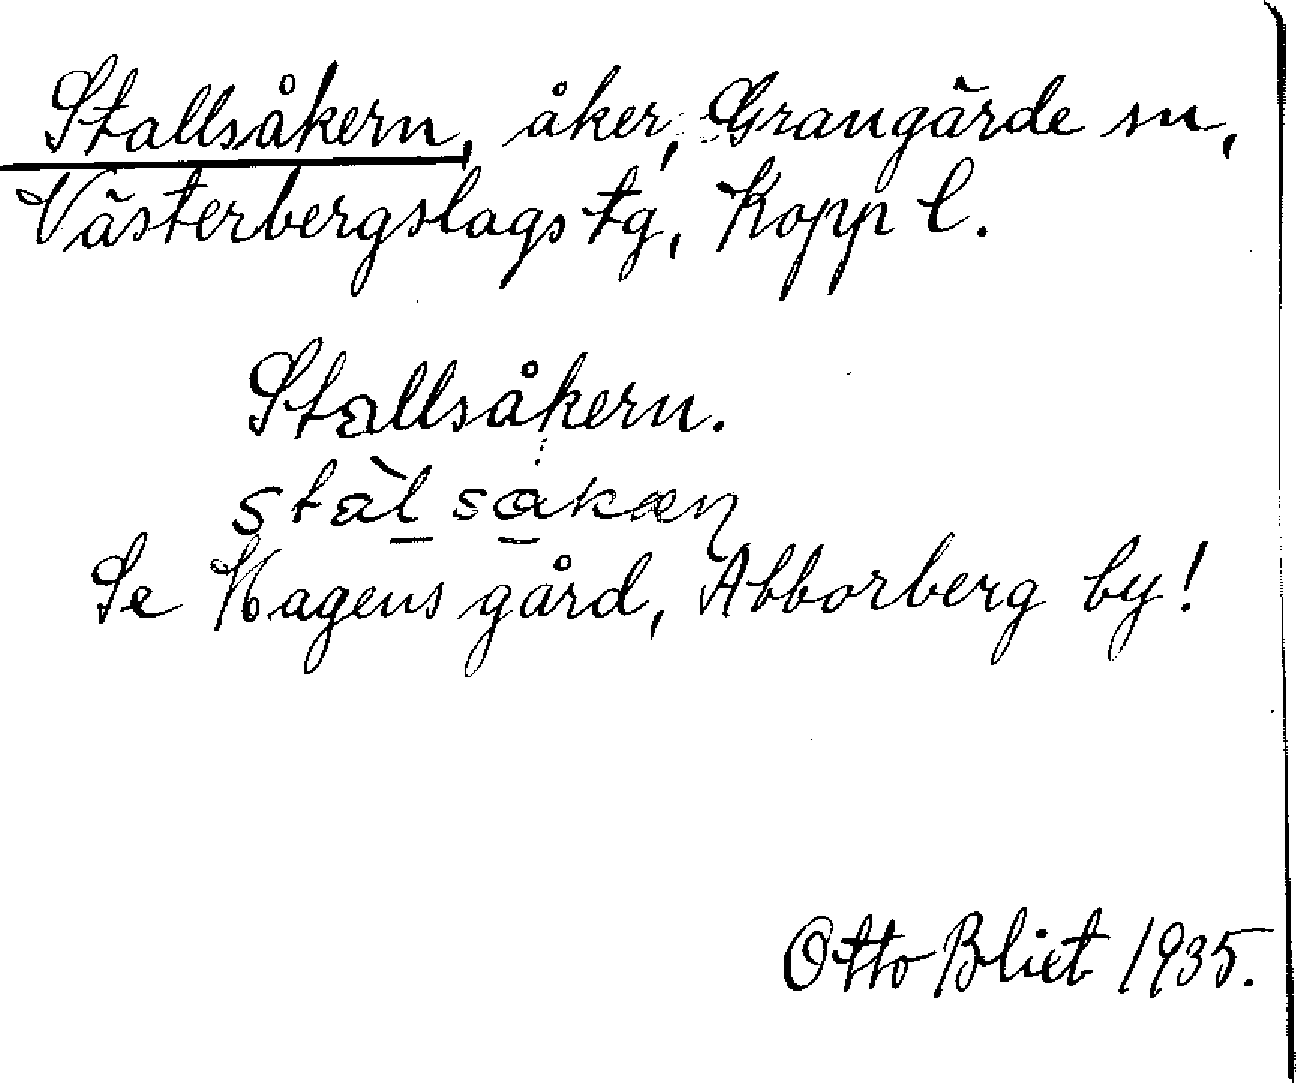 Stallsåkern, åker, Grangärde sn,
Västerbergslags tg, Kopp l.
Stallsåkern.
stàl såkæn
Se Hagens gård, Abborberg by!
Otto Bliet 1935.